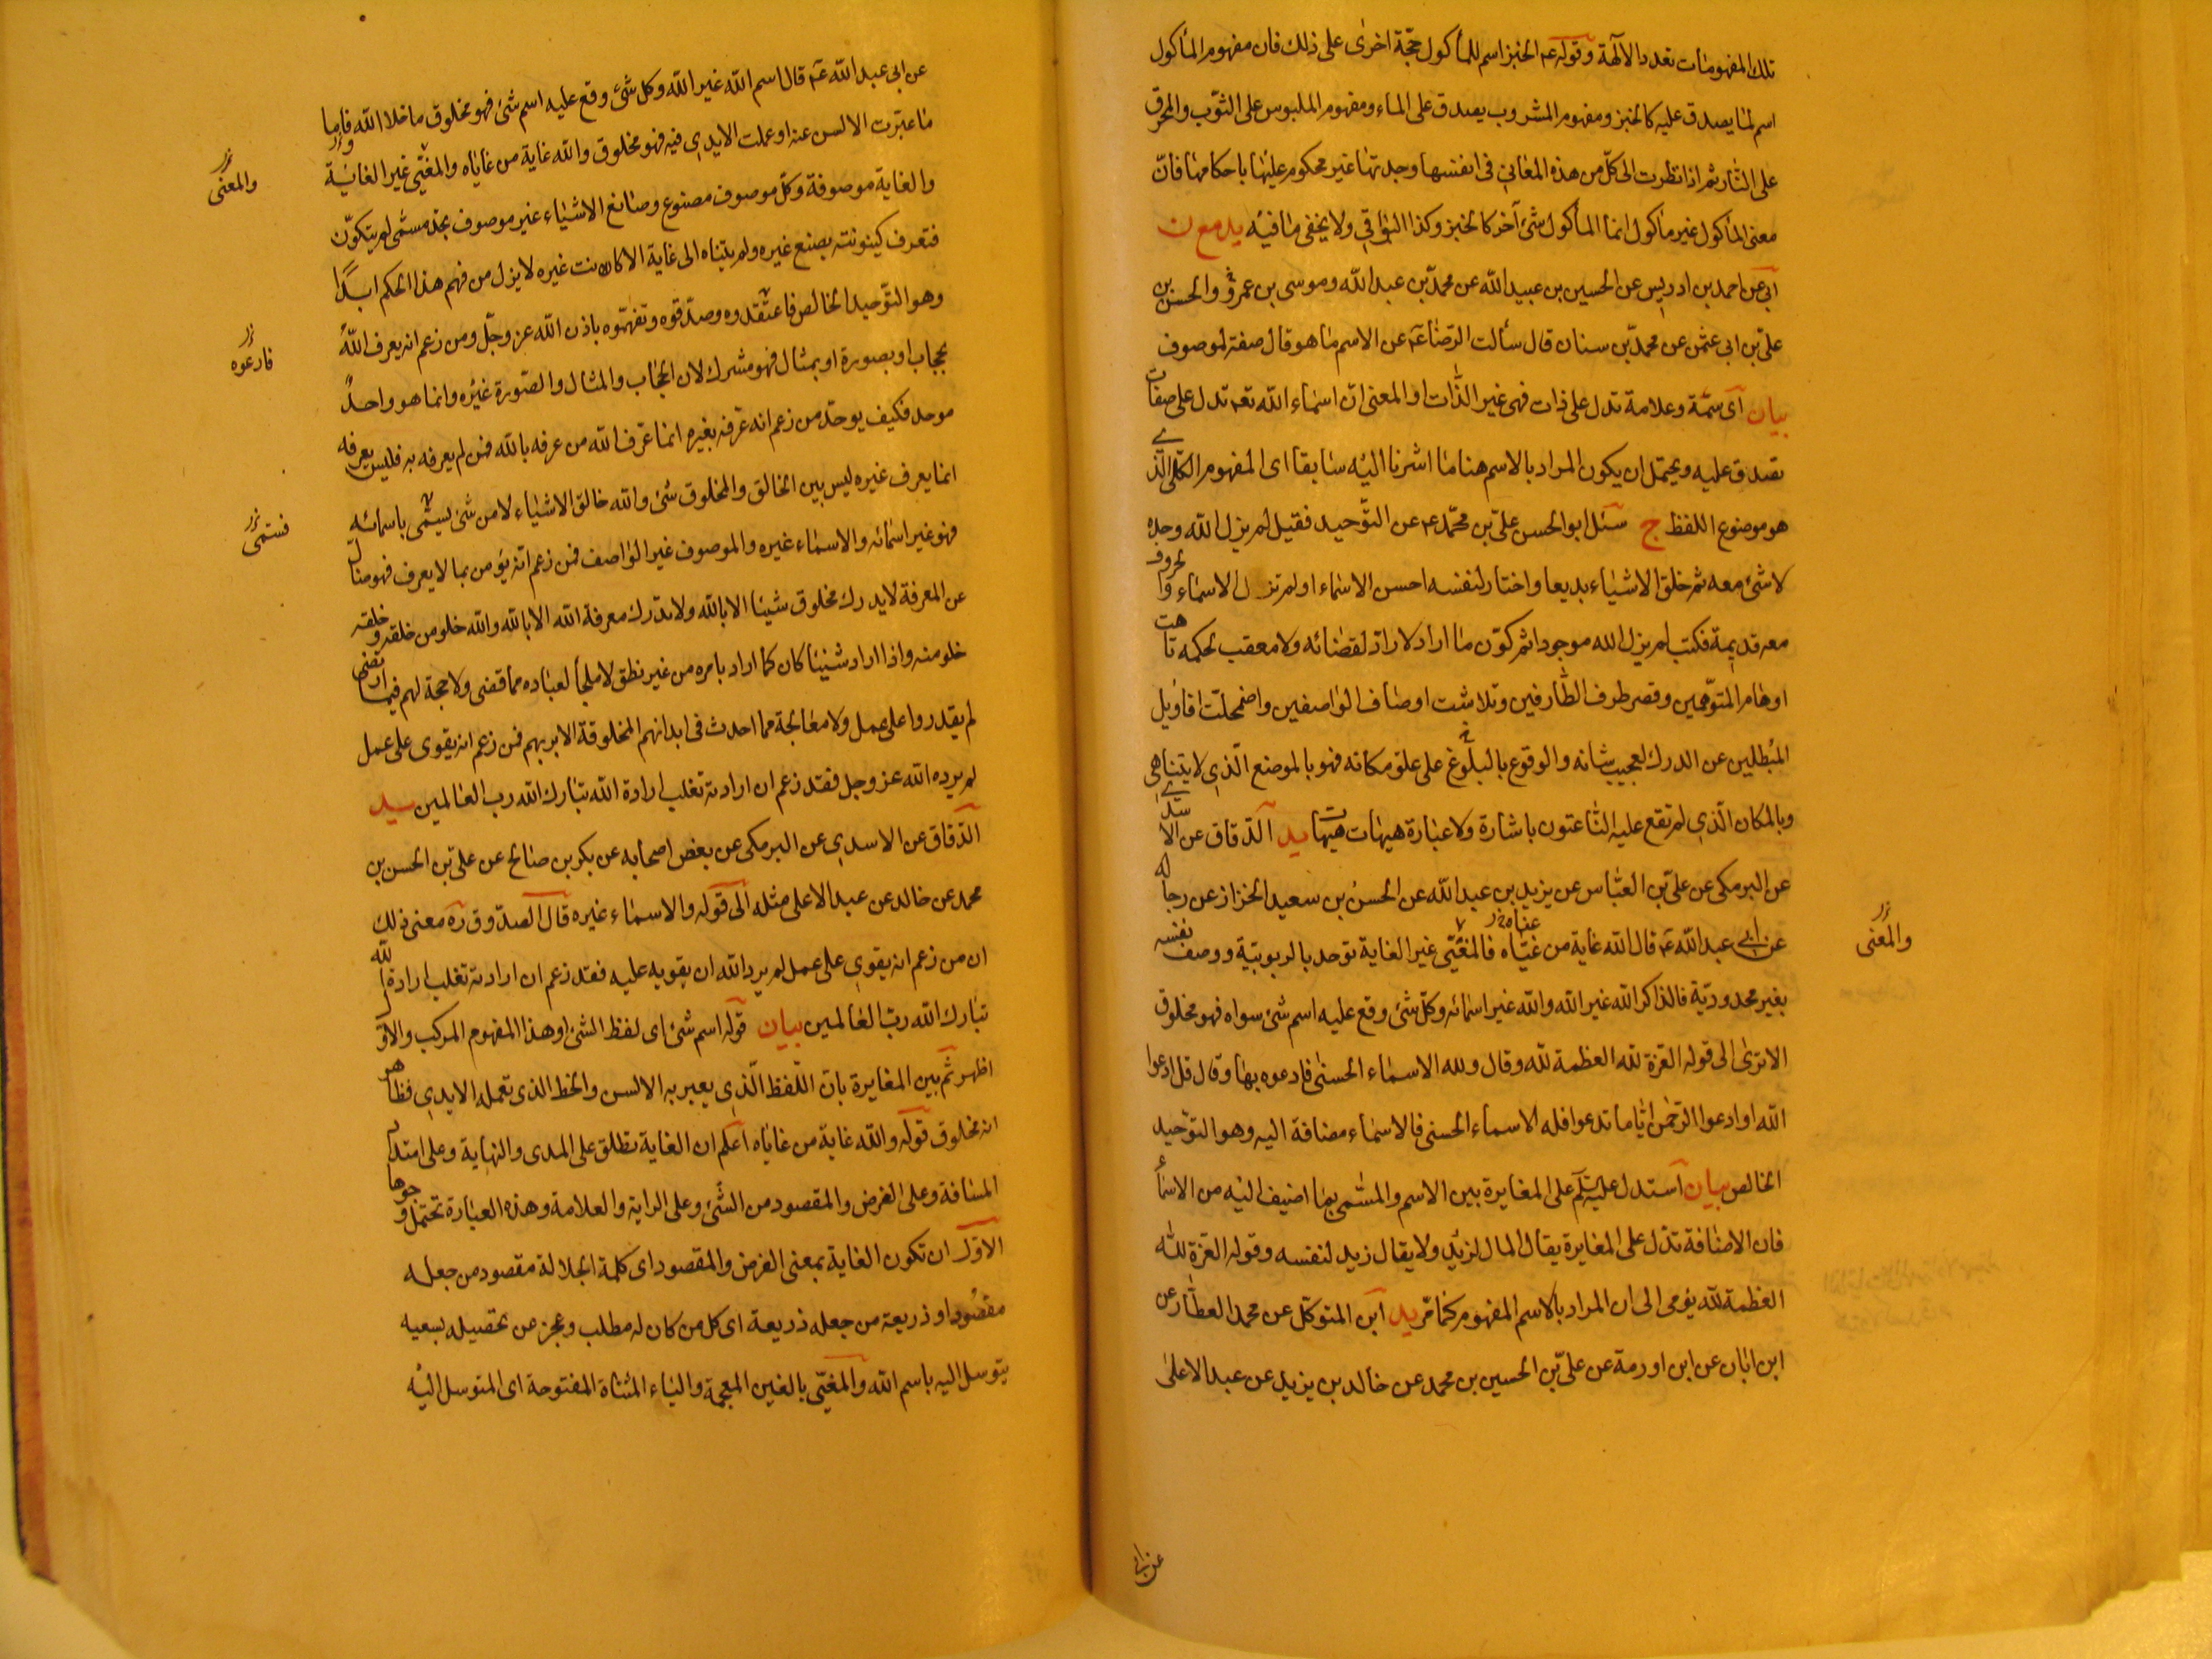 تلك المفهومات تعدد الآلهة وقوله ع الخبز اسم للمأكول حجّة اخرى على ذلك فان مفهوم المأكول
اسم لما يصدق عليه كالخبز ومفهوم المشروب يصدق على الماء ومفهوم الملبوس على الثوب والمحرق
على النار ثم اذا نظرت الى كلّ من هذه المعاني في انفسها وجدتها غير محكوم عليها باحكامها فانّ
معنى المأكول غير مأكول انما المأكول شئ آخر كالخبز وكذا البواقي ولا يخفى ما فيه يد مع ن
ابى عن احمد بن ادريس عن الحسين بن عبيد الله عن محمد بن عبد الله وموسى بن عمرو والحسن بن
علىّ بن ابى عثمن عن محمّد بن سنان قال سألت الرّضا ع عن الاسم ما هو قال صفة لموصوف
بيان اى سمة وعلامة تدل على ذات فهى غير الذّات او المعنى انّ اسماء الله تع تدل على صفات
تصدق عليه ويحتمل ان يكون المراد بالاسم هنا ما اشرنا اليه سابقا اى المفهوم الكلّى الّذى
هو موضوع اللفظ ج سئل ابو الحسن علىّ بن محمّد ع عن التّوحيد فقيل لم يزل الله وحده
لا شئ معه ثم خلق الاشياء بديعا واختار لنفسه احسن الاسماء او لم تزل الاسماء والحروف
معه قديمة فكتب لم يزل الله موجودا ثم كوّن ما اراد لا رادّ لقضائه ولا معقب لحكمه تاهت
اوهام المتوّهمين وقصر طرف الطّارفين وتلاشت اوصاف الواصفين واضمحلّت اقاويل
المبطلين عن الدرك لعجيب شانه والوقوع بالبلوغ على علوّ مكانه فهو بالموضع الّذى لا يتناهى
وبالمكان الّذى لم تقع عليه النّاعتون باشارة ولا عبارة هيهات هيهات يد الدّقاق عن الاسدى
عن البرمكى عن علىّ بن العبّاس عن يزيد بن عبد الله عن الحسن بن سعيد الخزاز عن رجاله
عن ابى عبد الله ع قال الله غاية من غيّاه فالمغيّى غير الغاية توحد بالربوبيّة ووصف نفسه
بغير محدوديّة فالذاكر الله غير الله والله غير اسمائه وكلّ شئ وقع عليه اسم شئ سواه فهو مخلوق
الا ترى الى قوله العزّة لله العظمة لله وقال ولله الاسماء الحسنى فادعوه بها وقال قل ادعوا
الله او ادعوا الرّحمن ايّاما تدعوا فله الاسماء الحسنى فالاسماء مضافة اليه وهو التوحيد
الخالص بيان استدل عليه السلم على المغايرة بين الاسم والمسّمى بما اضيف اليه من الاسماء
فان الاضافة تدل على المغايرة يقال المال لزيد ولا يقال زيد لنفسه وقوله العزّة لله
العظمة لله يؤمى الى ان المراد بالاسم المفهوم كما مرّ يد ابن المتوكّل عن محمد العطّار عن
ابن ابان عن ابن اورمة عن علىّ بن الحسين بن محمد عن خالد بن يزيد عن عبد الاعلى
والمعنى
عن ابى عبد الله ع قال اسم الله غير الله وكل شئ وقع عليه اسم شئ فهو مخلوق ما خلا الله فاما
ما عبّرت الالسن عنه او عملت الايدى فيه فهو مخلوق والله غاية من غاياه والمغيّى غير الغاية
والغاية موصوفة وكل موصوف مصنوع وصانع الاشياء غير موصوف بحدّ مسمّى لم يتكوّن
فتعرف كينونته بصنع غيره ولم يتناه الى غاية الا كانت غيره لا يزل من فهم هذا الحكم ابدًا
وهو التّوحيد الخالص فاعتقدوه وصدّقوه وتفهّموه باذن الله عز وجلّ ومن زعم انه يعرف الله
بحجاب او بصورة او بمثال فهو مشرك لان الحجاب والمثال والصّورة غيره وانما هو واحدٌ
موحد فكيف يوحّد من زعم انه عرفه بغيره انما عرف الله من عرفه بالله فمن لم يعرفه به فليس يعرفه
انما يعرف غيره ليس بين الخالق والمخلوق شئ والله خالق الاشياء لا من شئ يسمّى باسمائه
فهو غير اسمائه والاسماء غيره والموصوف غير الواصف فمن زعم انّه يؤمن بما لا يعرف فهو ضال
عن المعرفة لا يدرك مخلوق شيئا الا بالله ولا تدرك معرفة الله الا بالله والله خلو من خلقه وخلقه
خلو منه واذا اراد شيئا كان كما اراد بامره من غير نطق لا ملجأ لعباده مما قضى ولا حجة لهم فيما ارتضى
لم يقدروا على عمل ولا معالجة مما احدث فى ابدانهم المخلوقة الا بربهم فمن زعم انه يقوى على عمل
لم يرده الله عز وجل فقد زعم ان ارادته تغلب ارادة الله تبارك الله رب العالمين يد
الدّقاق عن الاسدى عن البرمكى عن بعض اصحابه عن بكر بن صالح عن علىّ بن الحسن بن
محمد عن خالد عن عبد الاعلى مثله الى قوله والاسماء غيره قال الصدّوق ره معنى ذلك
ان من زعم انه يقوى على عمل لم يرد الله ان يقويه عليه فقد زعم ان ارادته تغلب ارادة الله
تبارك الله ربّ العالمين بيان قوله اسم شئ اى لفظ الشئ او هذا المفهوم المركب والاوّل
اظهر ثم بين المغايرة بانّ اللّفظ الّذى يعبر به الالسن والخط الذى تعمله الايدى فظاهر
انه مخلوق قوله والله غاية من غاياه اعلم ان الغاية تطلق على المدى والنهاية وعلى امتداد
المسافة وعلى الغرض والمقصود من الشّئ وعلى الراية والعلامة وهذه العبارة تحتمل وجوها
الاوّل ان تكون الغاية بمعنى الغرض والمقصود اى كلمة الجلالة مقصود من جعله
مقصودا وذريعة من جعله ذريعة اى كل من كان له مطلب وعجز عن تحصيله بسعيه
يتوسل اليه باسم الله والمغيّى بالغين المعجمة والياء المثناة المفتوحة اى المتوسل اليه
والمعنى
فادعوه
فسمّى